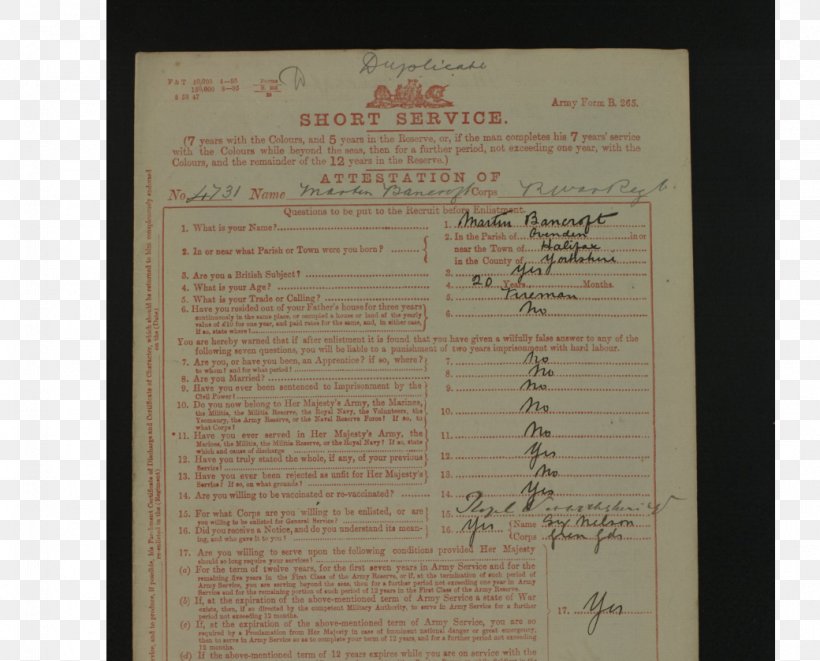 Duplicate
SHORT SERVICE.
Army Form B. 265.
(7 years with the Colours, and 5 years in the Reserve, or, if the man completes his 7 years' service
with the Colours while beyond the seas, then for a further period, not exceeding one year, with the
Colours, and the remainder of the 12 years in the Reserve.)
ATTESTATION OF
No. 4731 Name Martin Bancroft Corps R. War Regt
Questions to be put to the Recruit before Enlistment.
1. What is your Name? 1. Martin Bancroft
2. In or near what Parish or Town were you born? 2. In the Parish of Ovenden in or
near the Town of Halifax
in the County of Yorkshire
3. Are you a British Subject? 3. Yes
4. What is your Age? 4. 20 Years Months.
5. What is your Trade or Calling? 5. Fireman
6. Have you resided out of your Father's house for three years 6. No
continuously in the same place, or occupied a house or land of the yearly
value of £10 for one year, and paid rates for the same, and, in either case,
If so, state where?
You are hereby warned that if after enlistment it is found that you have given a wilfully false answer to any of the
following seven questions, you will be liable to a punishment of two years imprisonment with hard labour.
7. Are you, or have you been, an Apprentice? if so, where? 7. No
to whom? and for what period?
8. Are you Married? 8. No
9. Have you ever been sentenced to Imprisonment by the 9. No
Civil Power?
10. Do you now belong to Her Majesty's Army, the Marines, 10. No
the Militia, the Militia Reserve, the Royal Navy, the Volunteers, the
Yeomanry, the Army Reserve, or the Naval Reserve Force? If so, to
what Corps?
11. Have you ever served in Her Majesty's Army, the 11. No
Marines, the Militia, the Militia Reserve, or the Royal Navy? If so, state
which and cause of discharge
12. Have you truly stated the whole, if any, of your previous 12. Yes
Service?
13. Have you ever been rejected as unfit for Her Majesty's 13. No
Service? If so, on what grounds?
14. Are you willing to be vaccinated or re-vaccinated? 14. Yes
15. For what Corps are you willing to be enlisted, or are 15. Royal Warwickshire Regt
you willing to be enlisted for General Service?
16. Did you receive a Notice, and do you understand its mean- 16. Yes Name Nelson
ing, and who gave it to you? Corps Gren Gds
17. Are you willing to serve upon the following conditions provided Her Majesty
should so long require your services?
(a) For the term of twelve years, for the first seven years in Army Service, and for the
remaining five years in the First Class of the Army Reserve, or if, at the termination of such period of
Army Service, you are serving beyond the seas, then for a further period not exceeding one year in Army
Service and for the remaining portion of such period of 12 years in the First Class of the Army Reserve.
(b) If, at the expiration of the above-mentioned term of Army Service a state of War
exists, then, if so directed by the competent Military Authority, to serve in Army Service for a further
period not exceeding 12 months. 17. Yes
(c) If, at the expiration of the above-mentioned term of Army Service, you are so
required by a Proclamation from Her Majesty in case of imminent national danger or great emergency,
then to serve in Army Service so as to complete your term of 12 years, and for a further period not exceeding
12 months.
(d) If the above-mentioned term of 12 years expires while you are on service with the